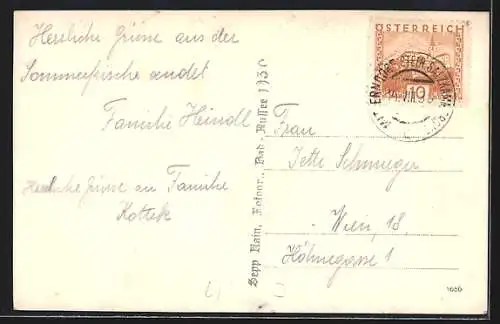 Herzliche Grüsse aus der
Sommerfrische sendet
Familie Heindl
Herzliche Grüsse an Familie
Kottek
Sepp Hain, Fotogr., Bad- Aussee 1930
ÖSTERREICH
10
Frau
Jetti Schmieger
Wien, 18,
Höhnegasse 1
1660